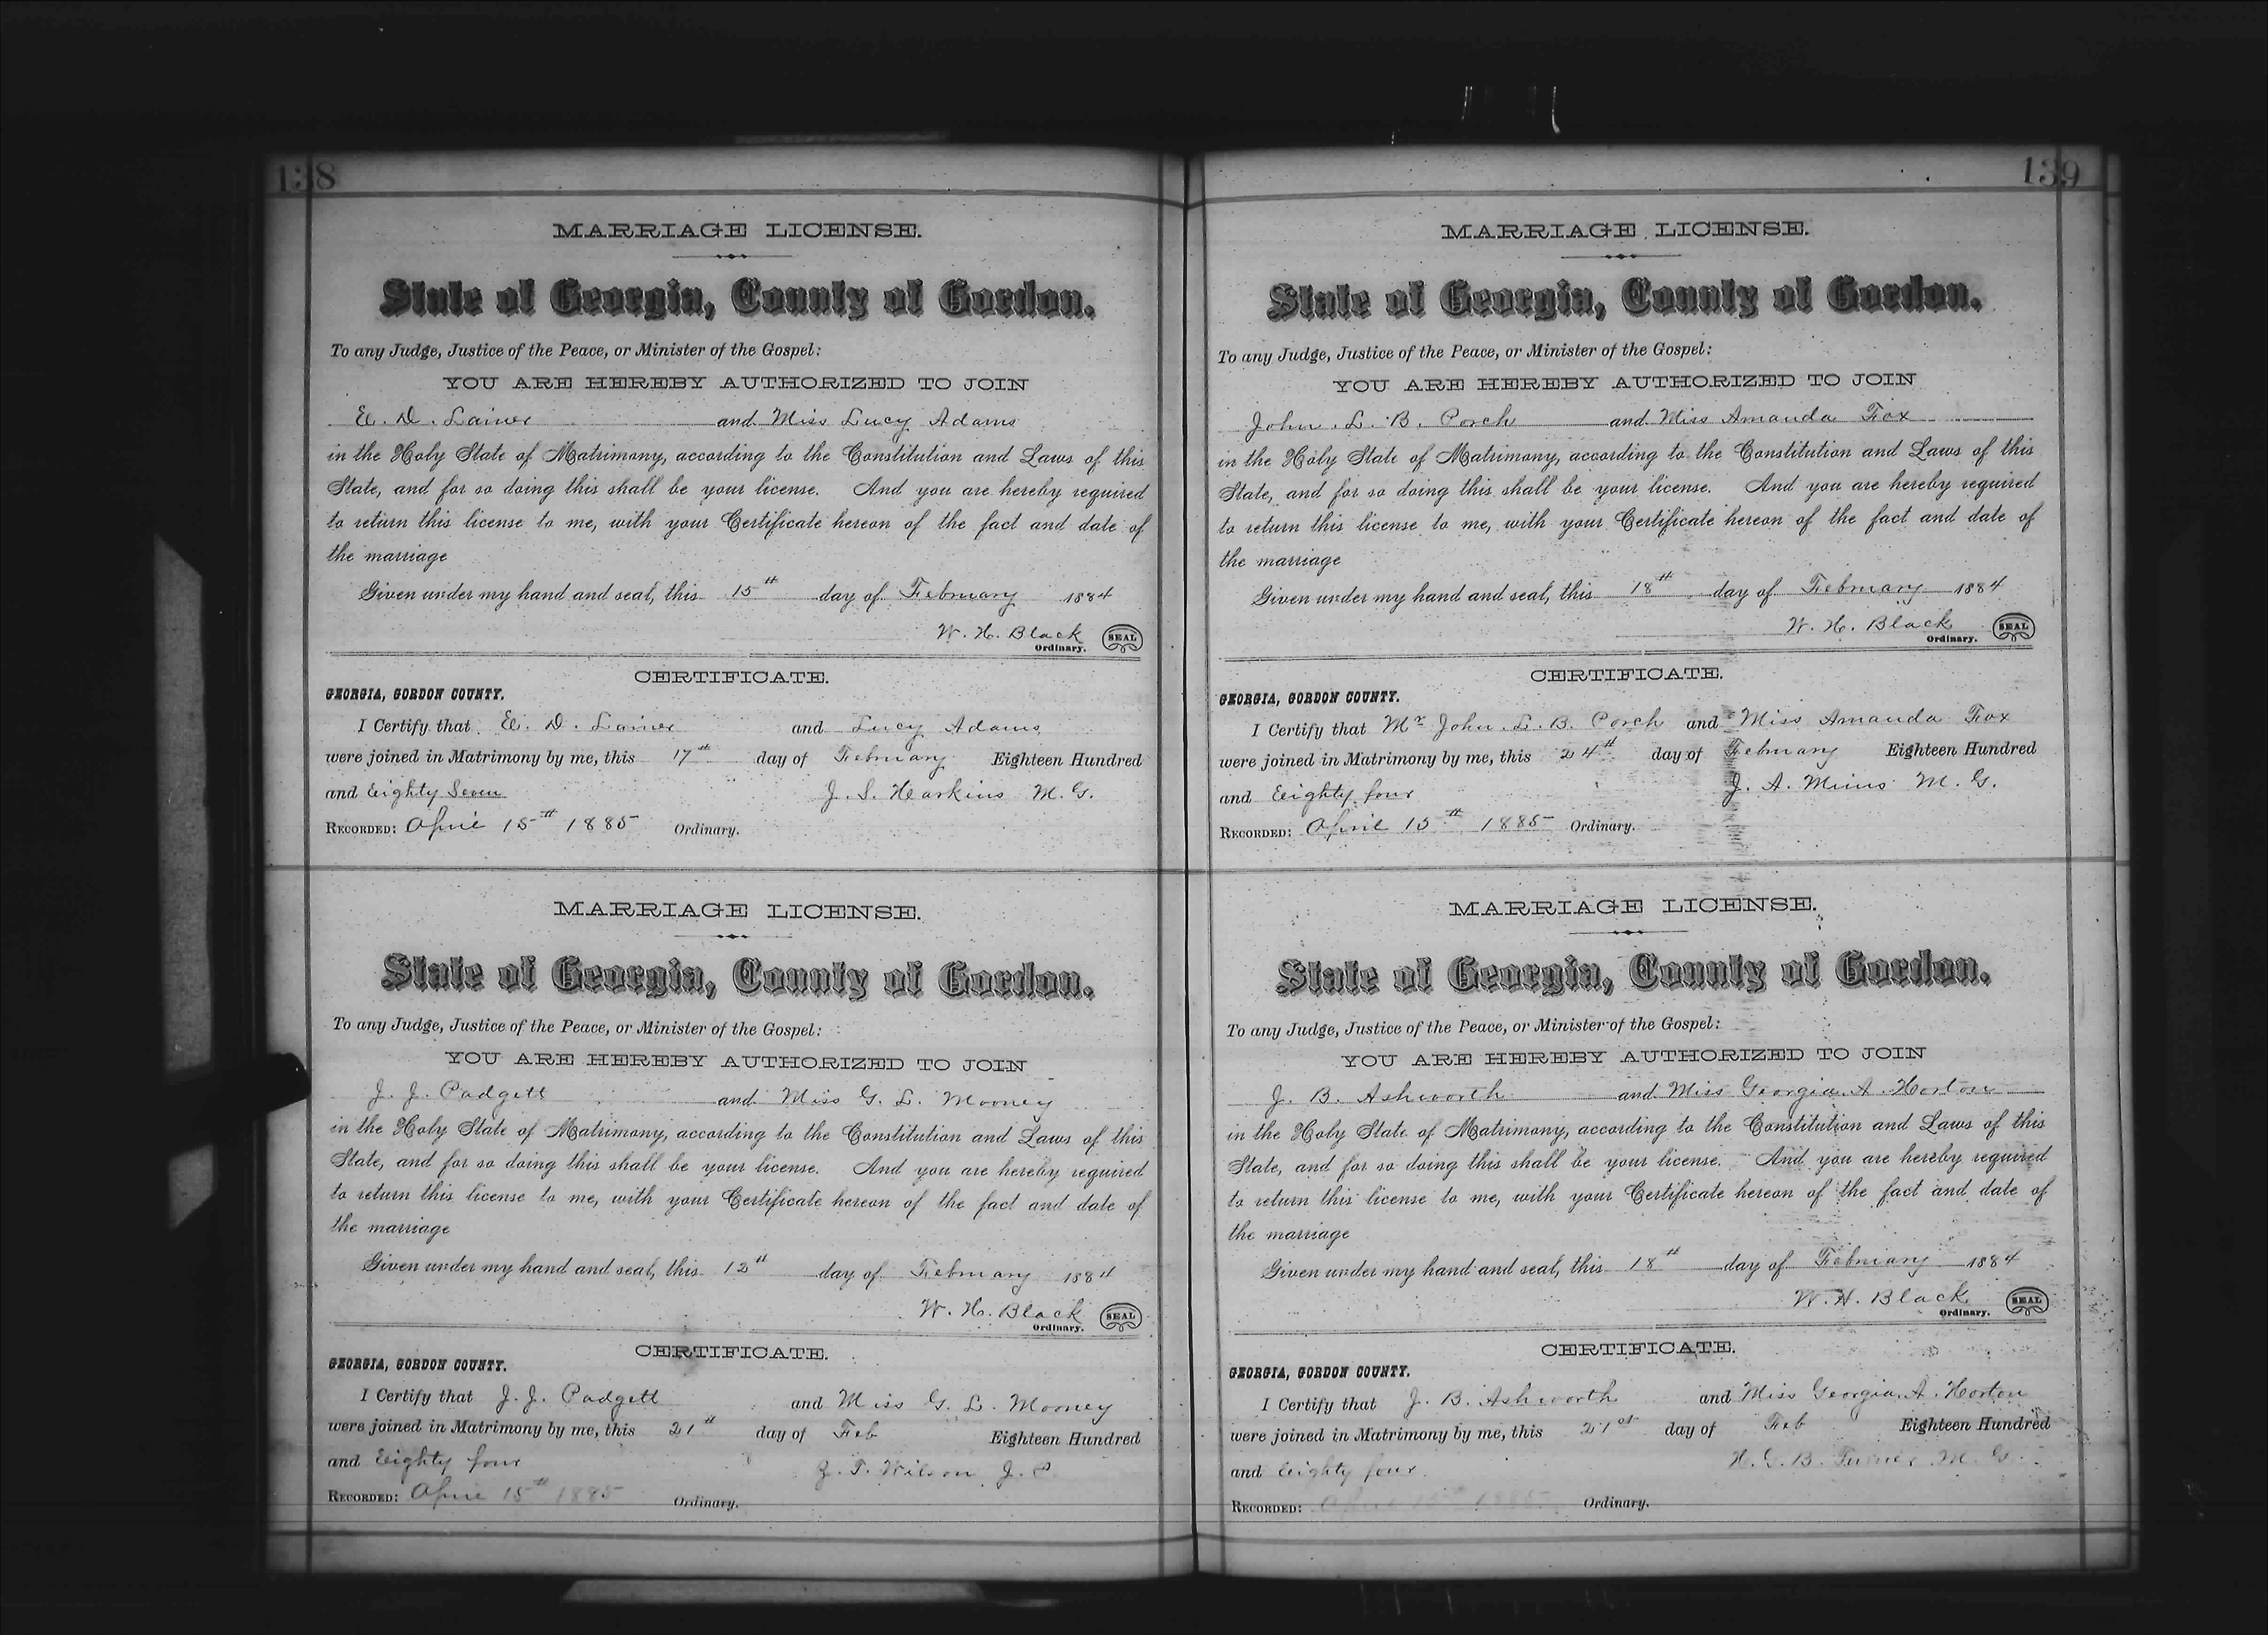 138
MARRIAGE LICENSE.
State of Georgia, County of Gordon.
To any Judge, Justice of the Peace, or Minister of the Gospel:
YOU ARE HEREBY AUTHORIZED TO JOIN
E. D. Lainer and Miss Lucy Adams
in the Holy State of Matrimony, according to the Constitution and Laws of this
State, and for so doing this shall be your license. And you are hereby required
to return this license to me, with your Certificate hereon of the fact and date of
the marriage
Given under my hand and seal, this 15th day of February 1884
W. H. Black SEAL
Ordinary.
CERTIFICATE.
GEORGIA, GORDON COUNTY.
I Certify that E. D. Lainer and Lucy Adams
were joined in Matrimony by me, this 17th day of February Eighteen Hundred
and Eighty Seven J. S. Harkins M. G.
RECORDED: April 15th 1885 Ordinary.
MARRIAGE LICENSE.
State of Georgia, County of Gordon.
To any Judge, Justice of the Peace, or Minister of the Gospel:
YOU ARE HEREBY AUTHORIZED TO JOIN
J. J. Padgett and Miss G. L. Mooney
in the Holy State of Matrimony, according to the Constitution and Laws of this
State, and for so doing this shall be your license. And you are hereby required
to return this license to me, with your Certificate hereon of the fact and date of
the marriage
Given under my hand and seal, this 12th day of February 1884
W. H. Black SEAL
Ordinary.
CERTIFICATE.
GEORGIA, GORDON COUNTY.
I Certify that J. J. Padgett and Miss G. L. Mooney
were joined in Matrimony by me, this 21th day of Feb Eighteen Hundred
and Eighty four T. Wilson J. P.
RECORDED: April 15th 1885 Ordinary.
139
MARRIAGE LICENSE.
State of Georgia, County of Gordon.
To any Judge, Justice of the Peace, or Minister of the Gospel:
YOU ARE HEREBY AUTHORIZED TO JOIN
John. L. B. Porch and Miss Amanda Fox
in the Holy State of Matrimony, according to the Constitution and Laws of this
State, and for so doing this shall be your license. And you are hereby required
to return this license to me, with your Certificate hereon of the fact and date of
the marriage
Given under my hand and seal, this 18th day of February 1884
W. H. Black SEAL
Ordinary.
CERTIFICATE.
GEORGIA, GORDON COUNTY.
I Certify that Mr John. L. B. Porch and Miss Amanda Fox
were joined in Matrimony by me, this 24th day of February Eighteen Hundred
and Eighty four J. A. Mims M. G.
RECORDED: April 15th 1885 Ordinary.
MARRIAGE LICENSE.
State of Georgia, County of Gordon.
To any Judge, Justice of the Peace, or Minister of the Gospel:
YOU ARE HEREBY AUTHORIZED TO JOIN
J. B. Ashworth and Miss Georgia. A. Horton
in the Holy State of Matrimony, according to the Constitution and Laws of this
State, and for so doing this shall be your license. And you are hereby required
to return this license to me, with your Certificate hereon of the fact and date of
the marriage
Given under my hand and seal, this 18th day of February 1884
W. H. Black SEAL
Ordinary.
CERTIFICATE.
GEORGIA, GORDON COUNTY.
I Certify that J. B. Ashworth and Miss Georgia. A. Horton
were joined in Matrimony by me, this 21st day of Feb Eighteen Hundred
and Eighty four B. Turner M. G.
RECORDED: 1885 Ordinary.